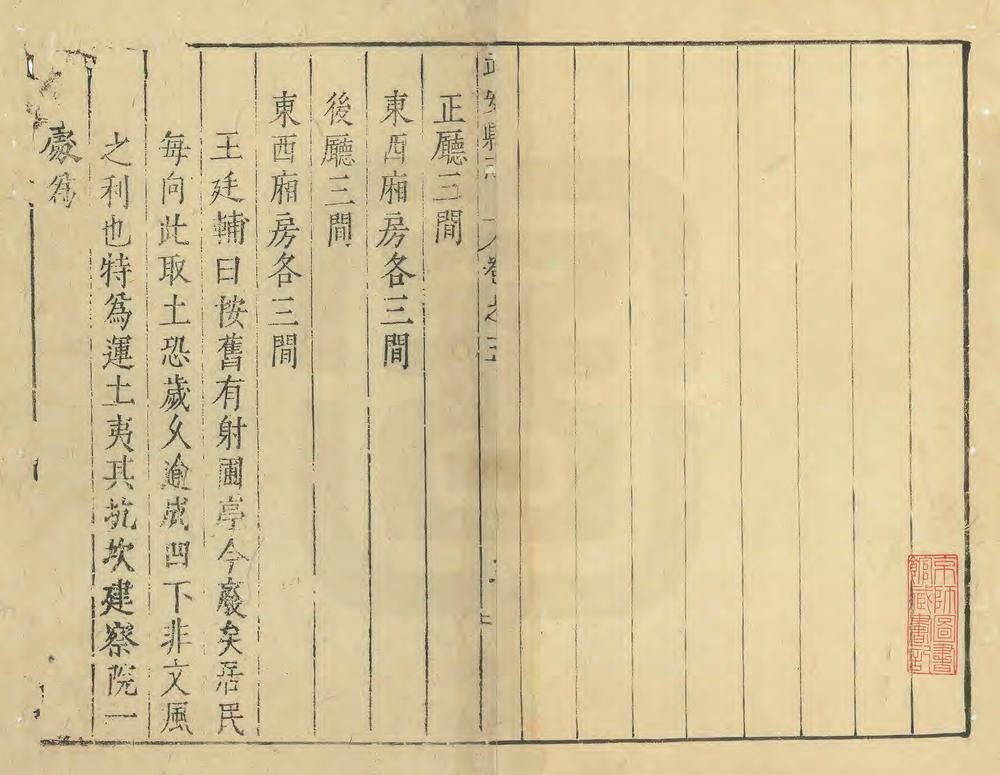 京師圖書
館藏書記
武安縣志 卷之三
正廳三間
東西廂房各三間
後廳三間
東西廂房各三間
王廷輔曰按舊有射圃亭今廢矣居民
每向此取土恐歲久逾成凹下非文風
之利也特為運土夷其坑坎建察院一
處為